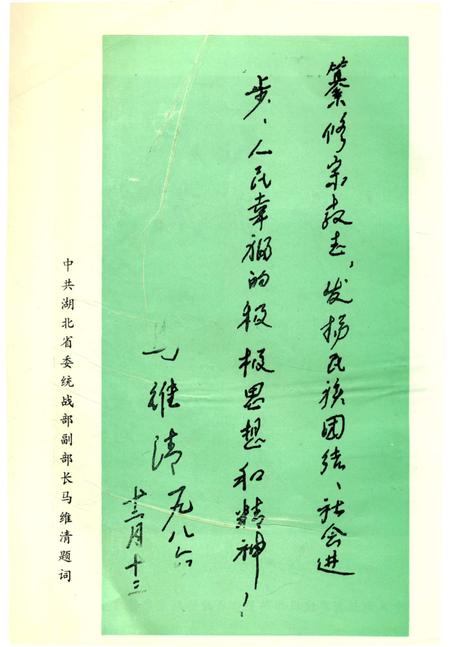 纂修宗教志，发扬民族团结、社会进
步、人民幸福的积极思想和精神！
马维清 一九八六
十二月十二
中共湖北省委统战部副部长马维清题词